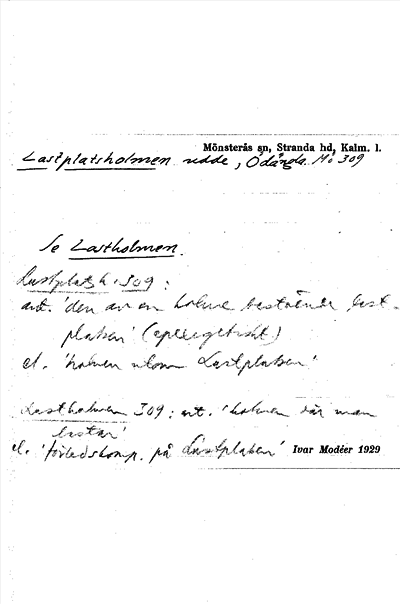 Mönsterås sn, Stranda hd, Kalm. l.
Lastplatsholmen udde, Ödängla Mö 309
Se Lastholmen.
Lastplatsh. 309:
ant. 'den av en holme bestående last-
platsen'
el. 'holmen utom Lastplatsen'
Lastholmen 309: ant. 'holmen där man
lastar'
el. 'förledskomp. på Lastplatsen' Ivar Modéer 1929